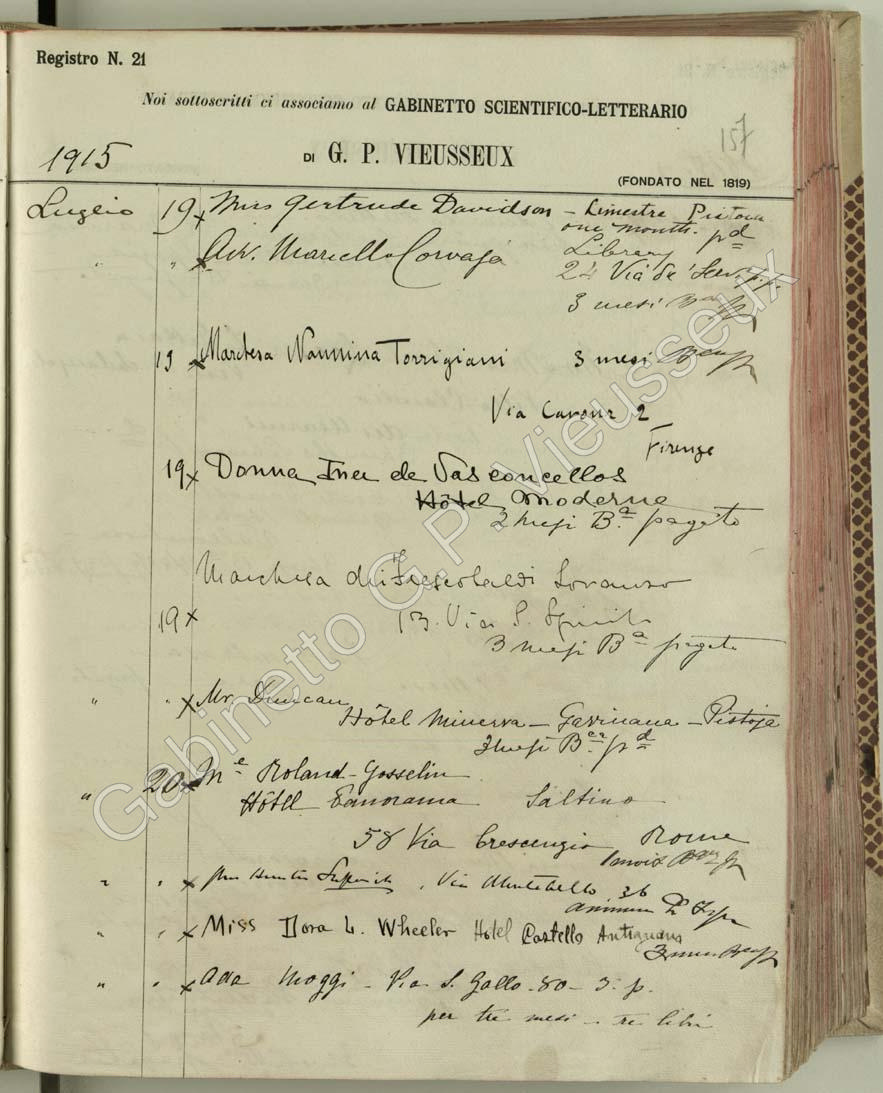 Registro N. 21
Noi sottoscritti ci associamo al GABINETTO SCIENTIFICO-LETTERARIO
157
1915
DI G. P. VIEUSSEUX
(FONDATO NEL 1819)
Luglio 19 x Miss Gertrude Davidson – Limestre Pistoia
one month. pd
" " x Avv. Marcello Corvaja Library
24 Via de' Servi p.p.
3 mesi
19 x Marchesa Nannina Torrigiani 3 mesi
Via Cavour 2
Firenze
19 x Donna Ines de Vasconcellos
Hôtel Moderne
2 mesi Ba. pagato
Marchesa di Frescobaldi
19 x 13. Via S. Spirito
3 mesi Ba pagato
" " x Mr. Duncan
Hôtel Minerva – Gavinana – Pistoja
3 mesi pd
" 20 x Me Roland-Gosselin
Hôtel Panorama Saltino
58 Via Crescenzio Rome
" " x Hunter Via Montebello 36
" " x Miss Dora L. Wheeler Hotel Castello
" " x Ada Moggi – Via S. Gallo – 80 – 3. p.
per tre mesi – tre libri
Gabinetto G.P. Vieusseux